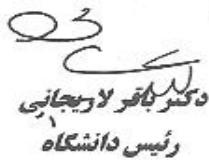 دکتر باقر لاریجانی
رئیس دانشگاه